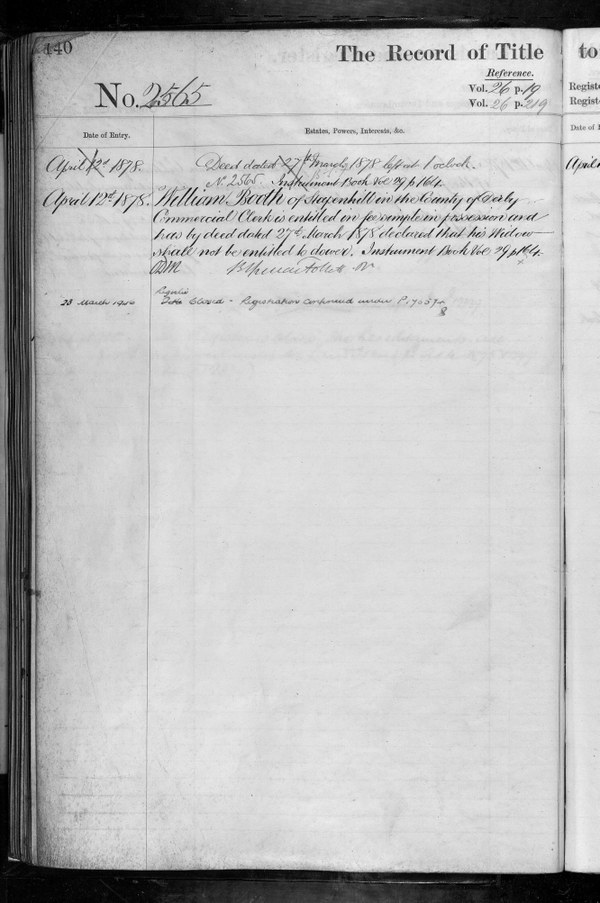 140
The Record of Title
Reference.
No. 2565
Vol. 26 p. 19
Vol. 26 p. 219
Date of Entry.
Estates, Powers, Interests, &c.
April 12th 1878.
Deed dated 27th March 1878 left at 1 oclock.
N. 2565. Instrument Book Vol 29 p 164.
April 12th 1878.
William Booth of Stapenhill in the County of Derby
Commercial Clerk is entitled in fee simple in possession and
has by deed dated 27th March 1878 declared that his Widow
shall not be entitled to dower. Instrument Book Vol 29 p 164.
23 March
Register
Closed - Registration continued under P.
to
Registe
Registe
Date of
April